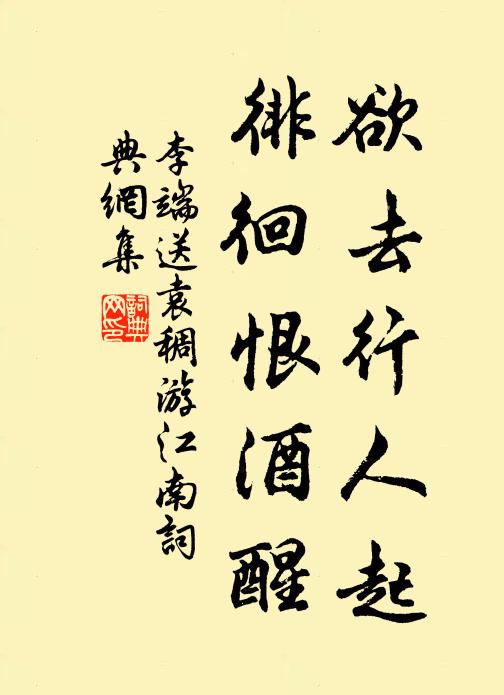 欲去行人起
徘徊恨酒醒
李端送袁稠游江南詞
典網集
詞典網印